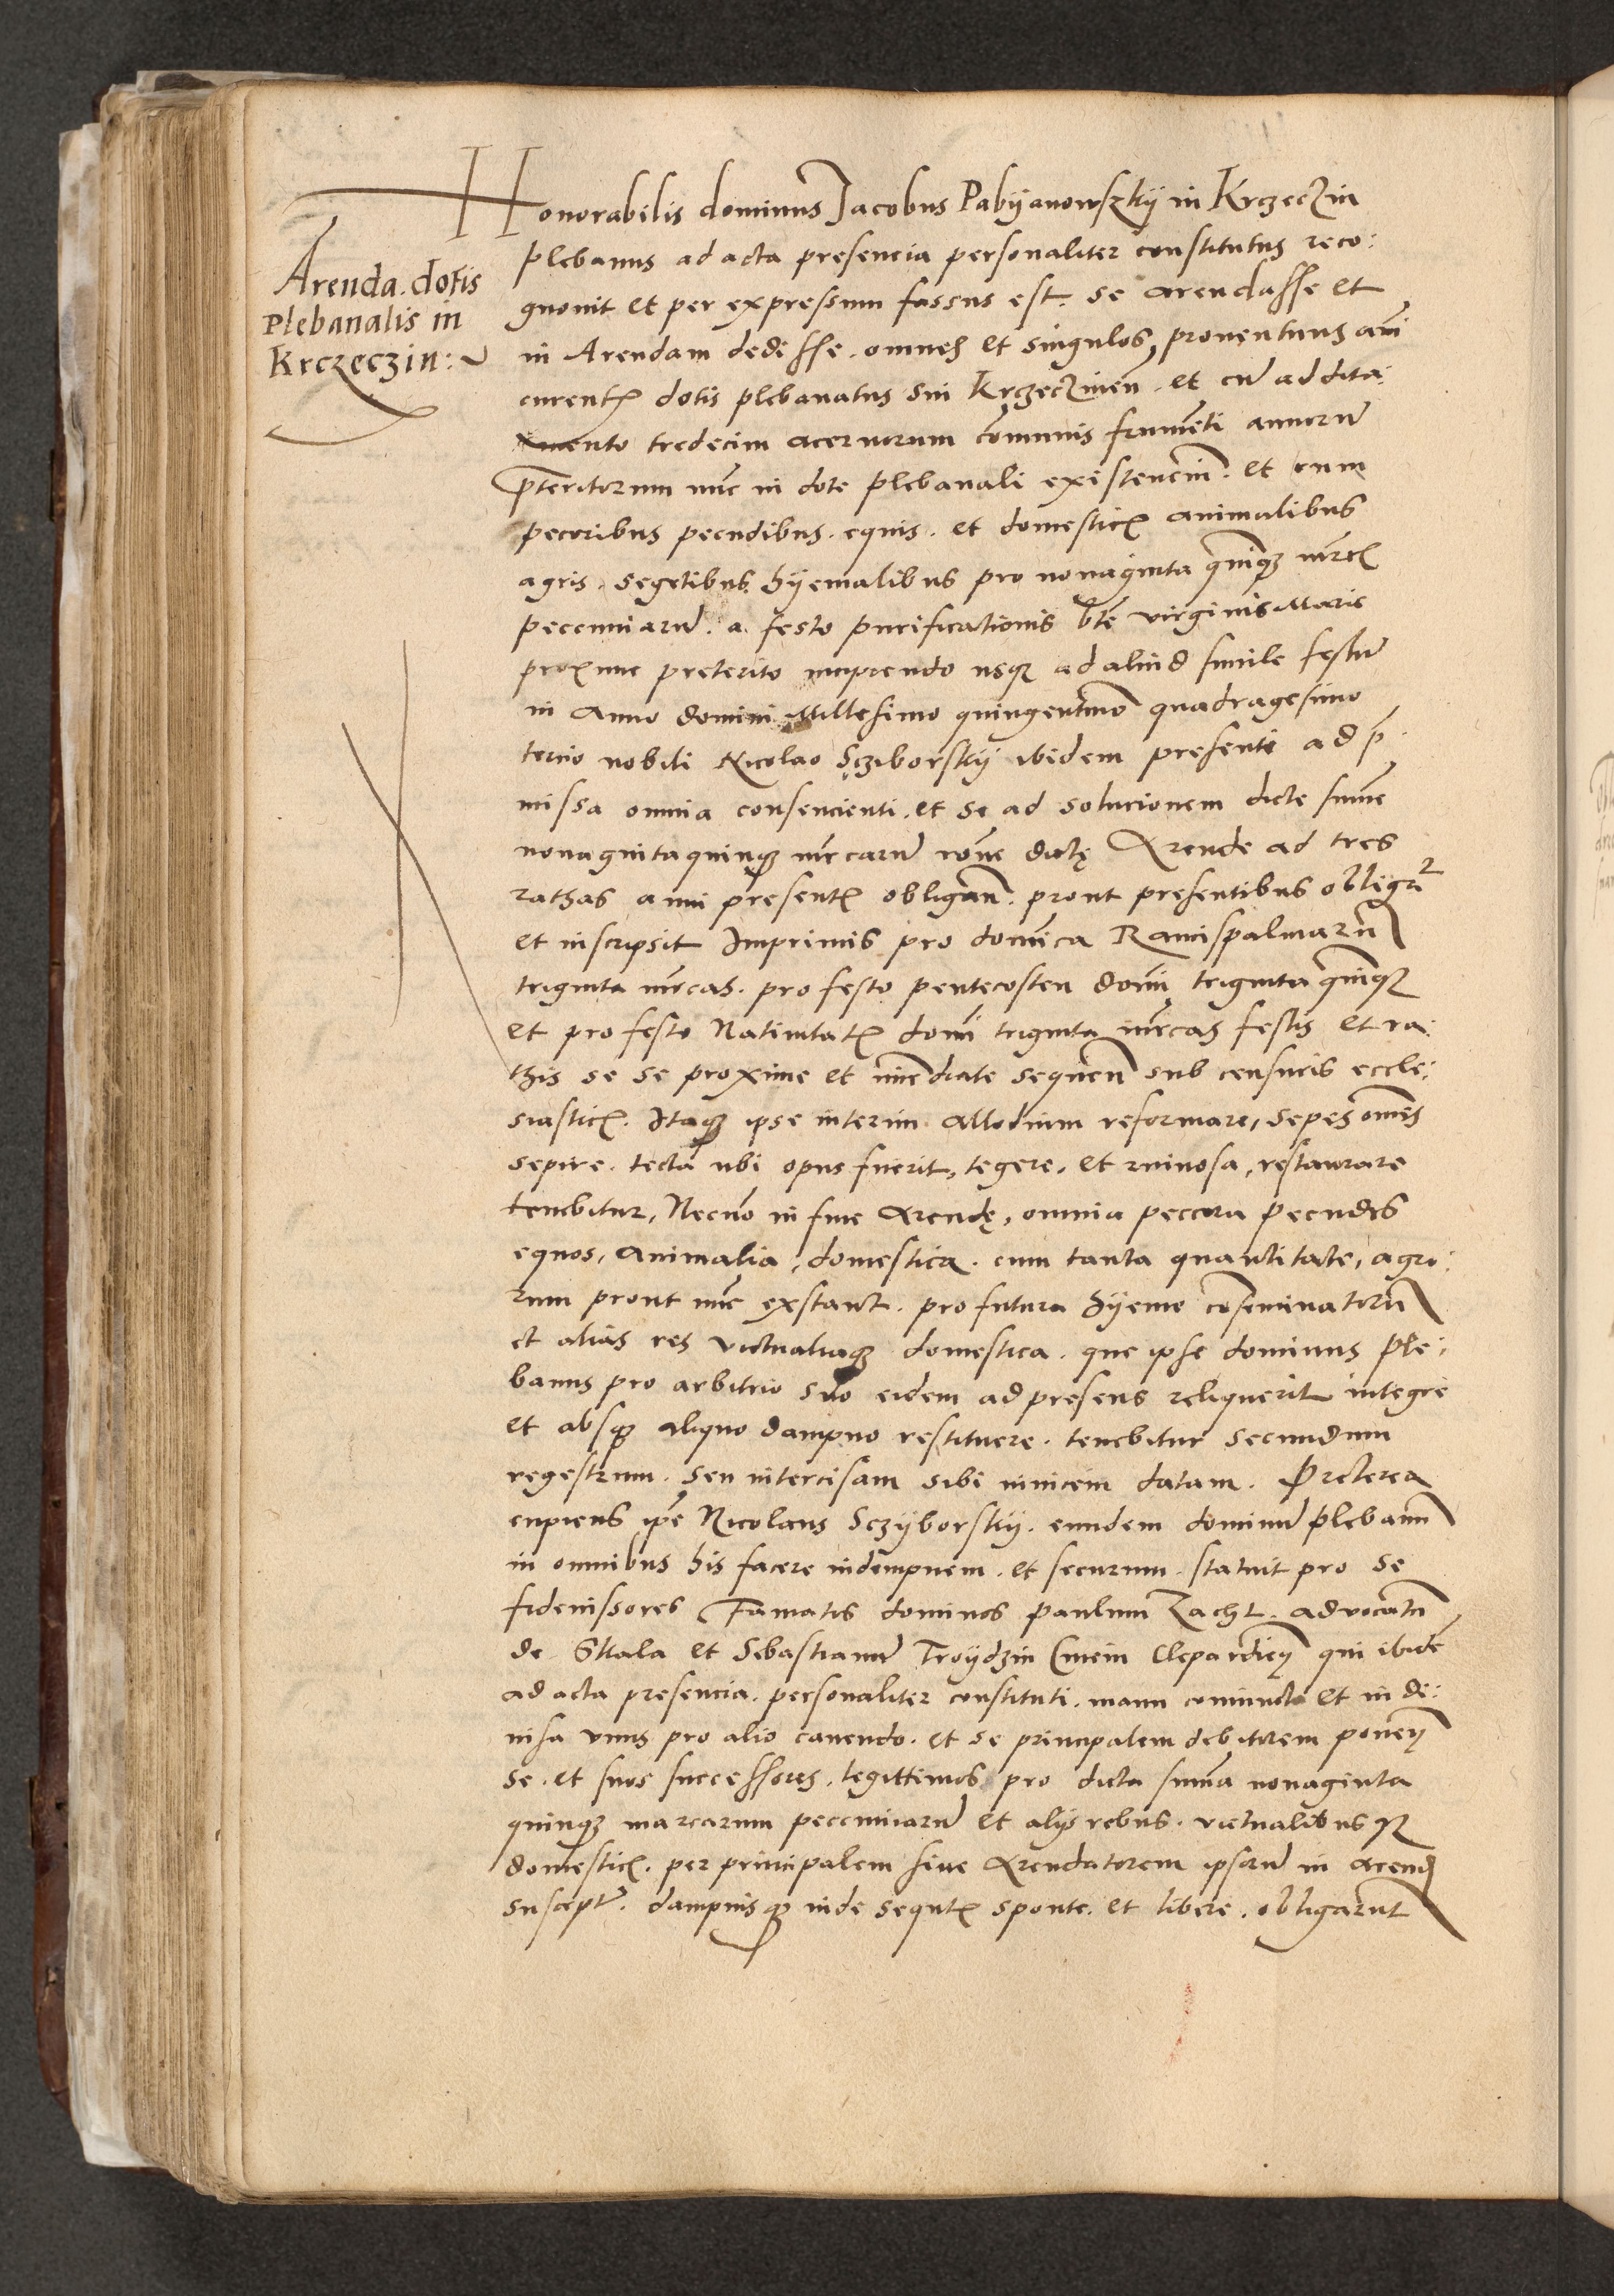 Honorabilis dominus Jacobus Pabyanowszky in Krczeczin
Arenda dotis
Plebanalis in
Krczeczin:
plebanus ad acta presencia personaliter constitutus reco:
gnouit et per expressum fassus est. se arendasse et
in Arendam dedisse. omnes et singulos prouentuus añi
curentis dotis plebanatus sui Krczeczineñ. et cũ addita:
mento tredecim aceruorum com̃unis frumẽti annorũ
p̃teritorum nũc in dote plebanali existenciũ. et cum
pecoribus pecudibus. equis. et domesticis animalibus
agris. segetibus. hyemalibus pro nonaginta quinq3 mrcis
peccuniarũ. a festo purificationis bt̃e virginis Marie
proxime preterito incipiendo usq3 ad aliud simile festũ
in Anno domini Millesimo quingentmo quadragesimo
tercio nobili Nicolao Scziborsky ibidem presenti ad p̃:
missa omnia consencienti. et se ad solucionem dicte sum̃e
nonagintaquinq3 mrcarũ rõne dictę Arende ad tres
rathas anni presentis obligañ. prout presentibus obligat
et inscripsit Imprimis pro dominica Ramispalmarũ
triginta mrcas. pro festo pentecosten domĩ triginta quinq3
et pro festo Natiuitatis domĩ triginta mrcas festis et ra:
this se se proxime et im̃ediate sequeñ sub censuris eccle:
siasticis. Itaq3 ipse interim allodium reformare, sepes om̃es
sepire. tecta ubi opus fuerit, tegere, et ruinosa, restaurare
tenebitur, Necnõ in fine Arendę, omnia peccora pecudes
equos, animalia, domestica. cum tanta quantitate, agro:
rum prout nũc exstant. pro futura hyeme cõseminatorũ
et alias res victualiaq3 domestica. que ipse dominus Ple:
banus pro arbitrio suo eidem ad presens reliquerit integre
et absq3 aliquo dampno restituere. tenebitur secundum
regestrum. seu intercisam sibi inuicem datam. Preterea
cupiens ipe Nicolaus Sczyborsky. eundem dominũ plebanũ
in omnibus his facere indempnem. et securum. statuit pro se
fideiussores Famatis dominos Paulum Zacht. aduocatũ
de Skala et Sebastianũ Troydzin Ciuem Clepardieñ qui ibidẽ
ad acta presencia. personaliter constituti. manu coniuncta et in di:
uisa vnus pro alio cauendo. et se principalem debitorem poneñ
se. et suos successores. legittimos pro dicta sum̃a nonaginta
quinq3 marcarum peccuniarũ et alijs rebus. victualibusq3
domesticis. per principalem siue Arendatorem ipsorũ in arendã
suscept̃. dampnisq3 inde sequtis sponte. et libere. obligarunt